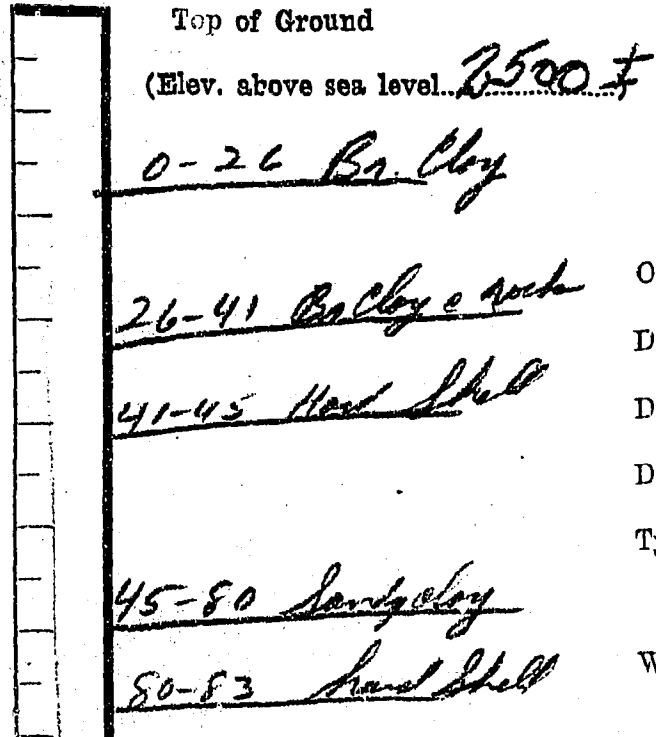 Top of Ground
(Elev. above sea level 2500 ±
0-26 Br. Clay
26-41 Br Clay & Rock
41-45 Hard Shell
45-80 Sandy clay
80-83 hard Shell
O
D
D
D
Ty
W